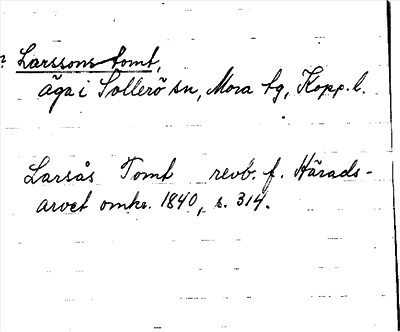 ? Larssons tomt,
äga i Sollerö sn, Mora tg, Kopp. l.
Larsås Tomt revb. f. Härads-
arvet omkr. 1840, s. 314.